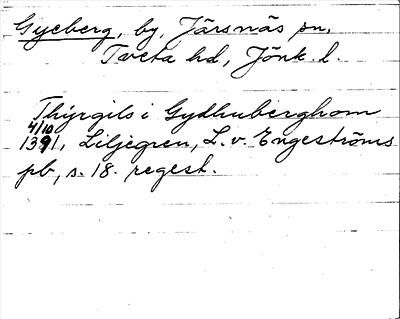 Gyeberg, by, Järsnäs sn,
Tveta hd, Jönk. l.
Thyrgils i Gydhubérghom
4/10
1391, Liljegren, L. v. Engeströms
pb, s. 18. regest.